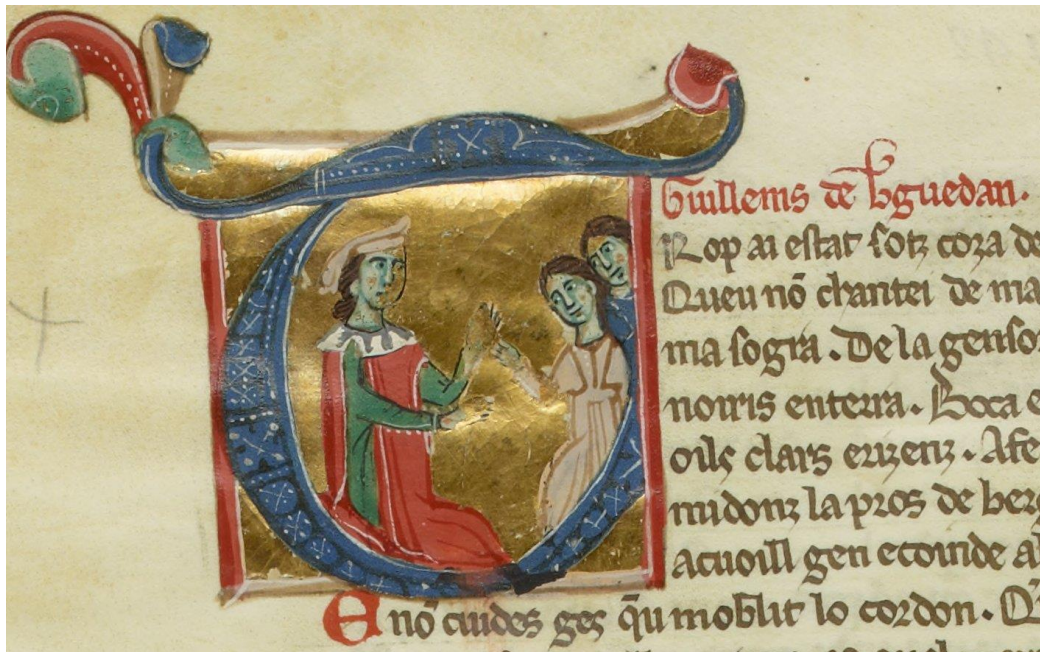 Guillems de bguedan.
Rop ai estat sotz coza de
Queu nō chantei de ma
ma sogra. De la genso
noiris enterra. Boca e
oilς clars erizenz. Afe
midonz la pros de berg
acuoill gen ecoinde a
E nō cuides ges q̄u moblit lo cordon. Q